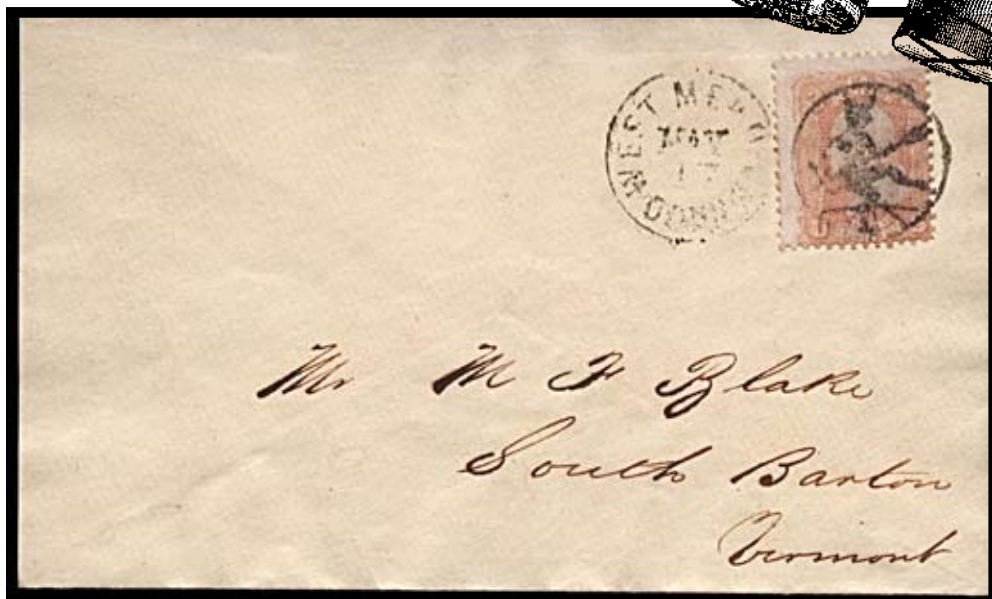 WEST MER
CONN
Mr M F Blake
South Barton
Vermont